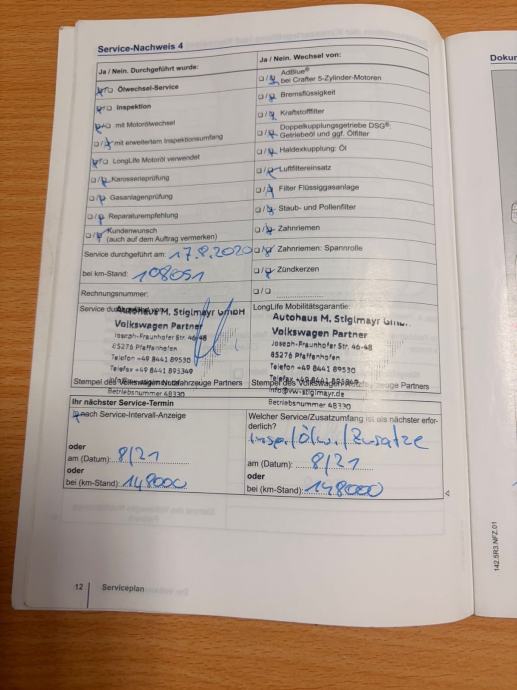 Service-Nachweis 4
Ja / Nein. Durchgeführt wurde:
Ölwechsel-Service
Inspektion
mit Motorölwechsel
mit erweitertem Inspektionsumfang
LongLife Motoröl verwendet
Karosserieprüfung
Gasanlagenprüfung
Reparaturempfehlung
Kundenwunsch
(auch auf dem Auftrag vermerken)
Service durchgeführt am: 17.8.2020
bei km-Stand: 108051
Rechnungsnummer:
Ja / Nein. Wechsel von:
AdBlue®
bei Crafter 5-Zylinder-Motoren
Bremsflüssigkeit
Kraftstofffilter
Doppelkupplungsgetriebe DSG®:
Getriebeöl und ggf. Ölfilter
Haldexkupplung: Öl
Luftfiltereinsatz
Filter Flüssiggasanlage
Staub- und Pollenfilter
Zahnriemen
Zahnriemen: Spannrolle
Zündkerzen
Service
Autohaus M. Stiglmayr GmbH
Volkswagen Partner
Joseph-Fraunhofer Str. 46-48
85276 Pfaffenhofen
Telefon +49 8441 89530
Telefax +49 8441 895349
Stempel des Volkswagen Nutzfahrzeuge Partners
Betriebsnummer 48330
LongLife Mobilitätsgarantie:
Autohaus M. Stiglmayr GmbH
Volkswagen Partner
Joseph-Fraunhofer Str. 46-48
85276 Pfaffenhofen
Telefon +49 8441 89530
Telefax +49 8441 895349
Stempel des Volkswagen Nutzfahrzeuge Partners
info@vw-stiglmayr.de
Betriebsnummer 48330
Ihr nächster Service-Termin
nach Service-Intervall-Anzeige
oder
am (Datum): 8/21
oder
bei (km-Stand): 148000
Welcher Service/Zusatzumfang ist als nächster erfor-
derlich?
Insp./Ölw./Zusätze
am (Datum): 8/21
oder
bei (km-Stand): 148000
12 Serviceplan
Dokur
142.5R3.NFZ.01